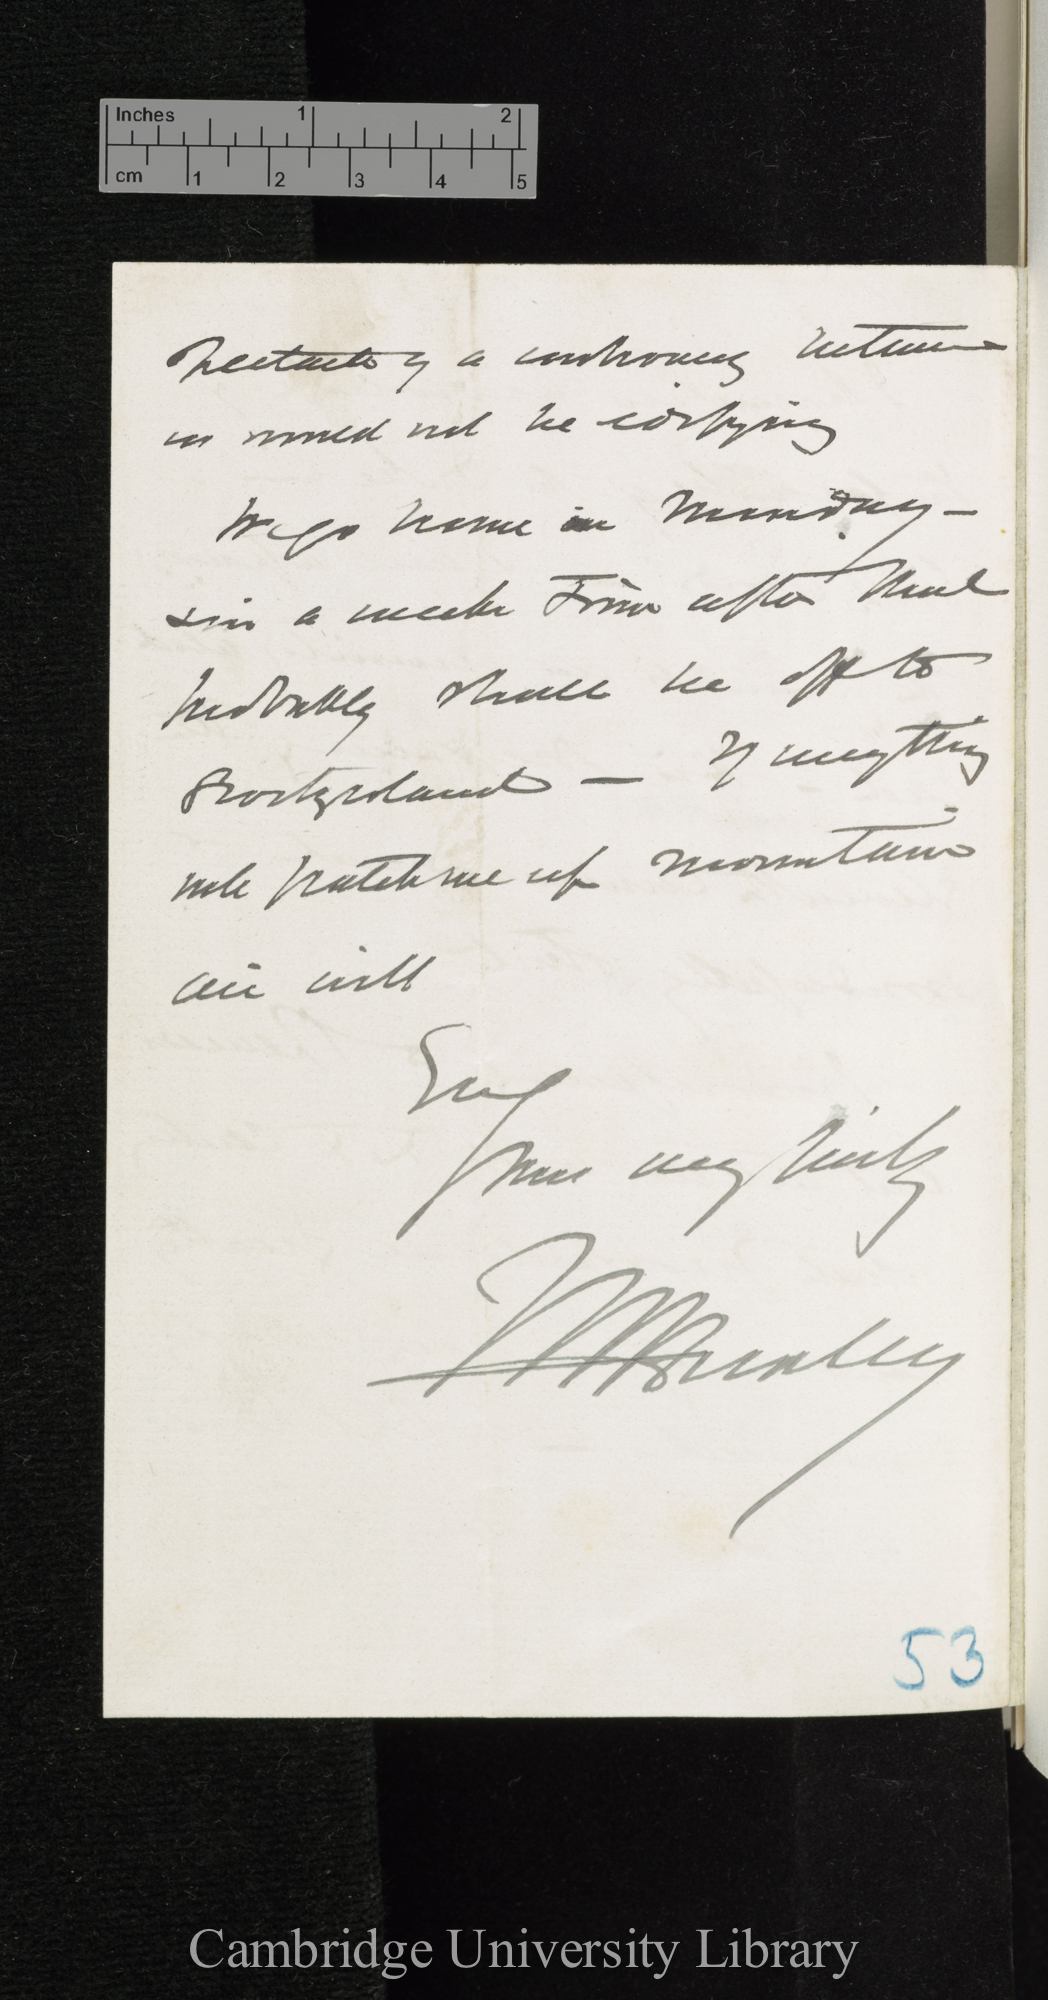 Inches 1 2
cm 1 2 3 4 5
spectacle of a controversy between
us would not be edifying
We go home on Monday –
& in a weeks time after that
probably shall be off to
Switzerland – If anything
will patch me up mountain
air will
Ever
Yours very truly
T H Huxley
53
Cambridge University Library